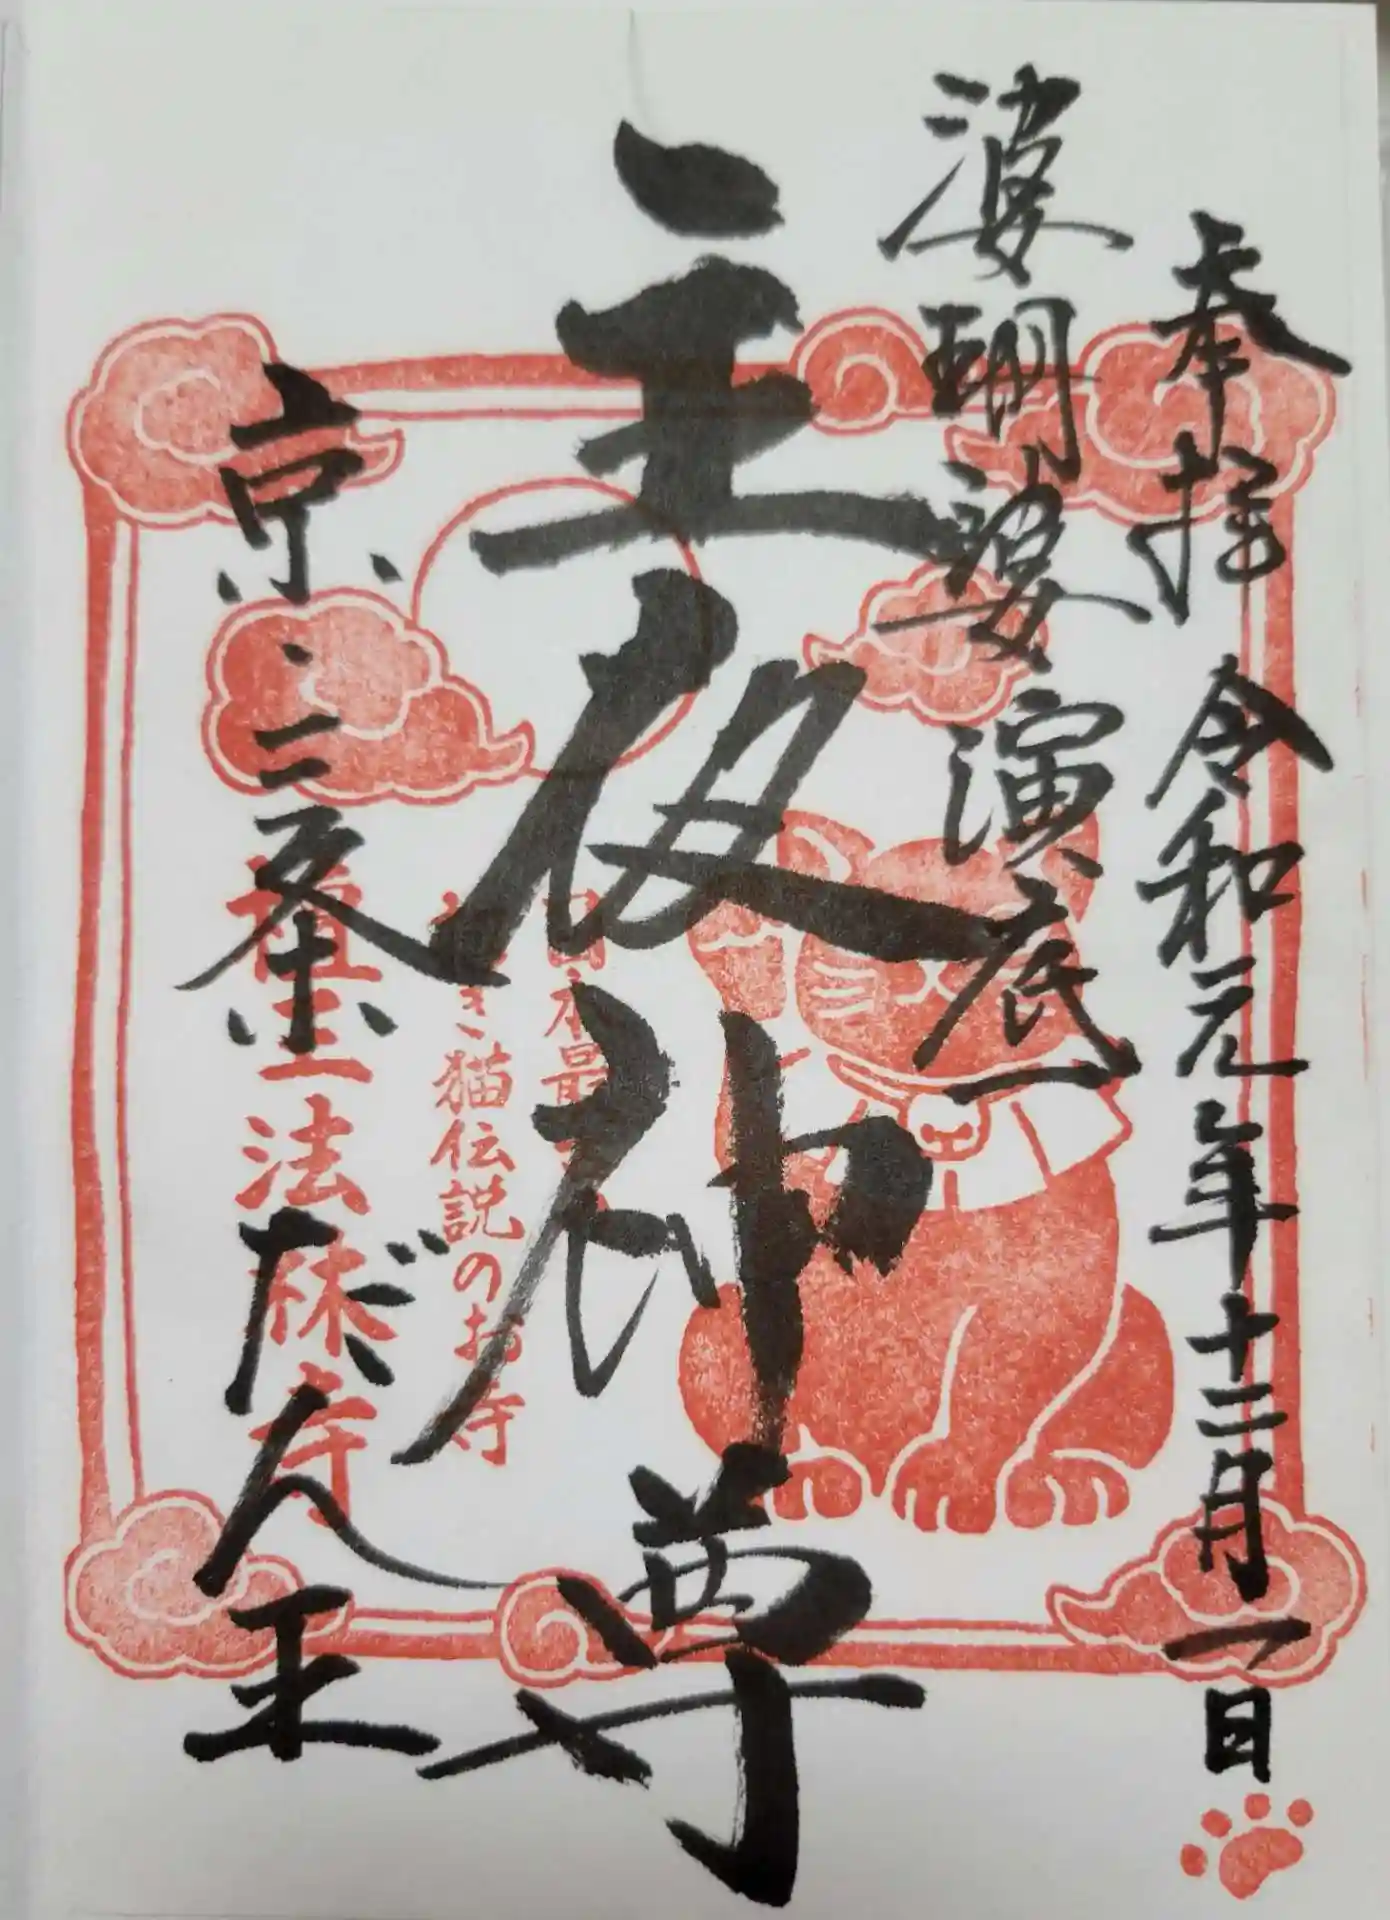 奉拝 令和元年十二月一日
婆珊婆演底
主夜神尊
日本最
き猫伝説のお寺
京、三条
だん王
法林寺